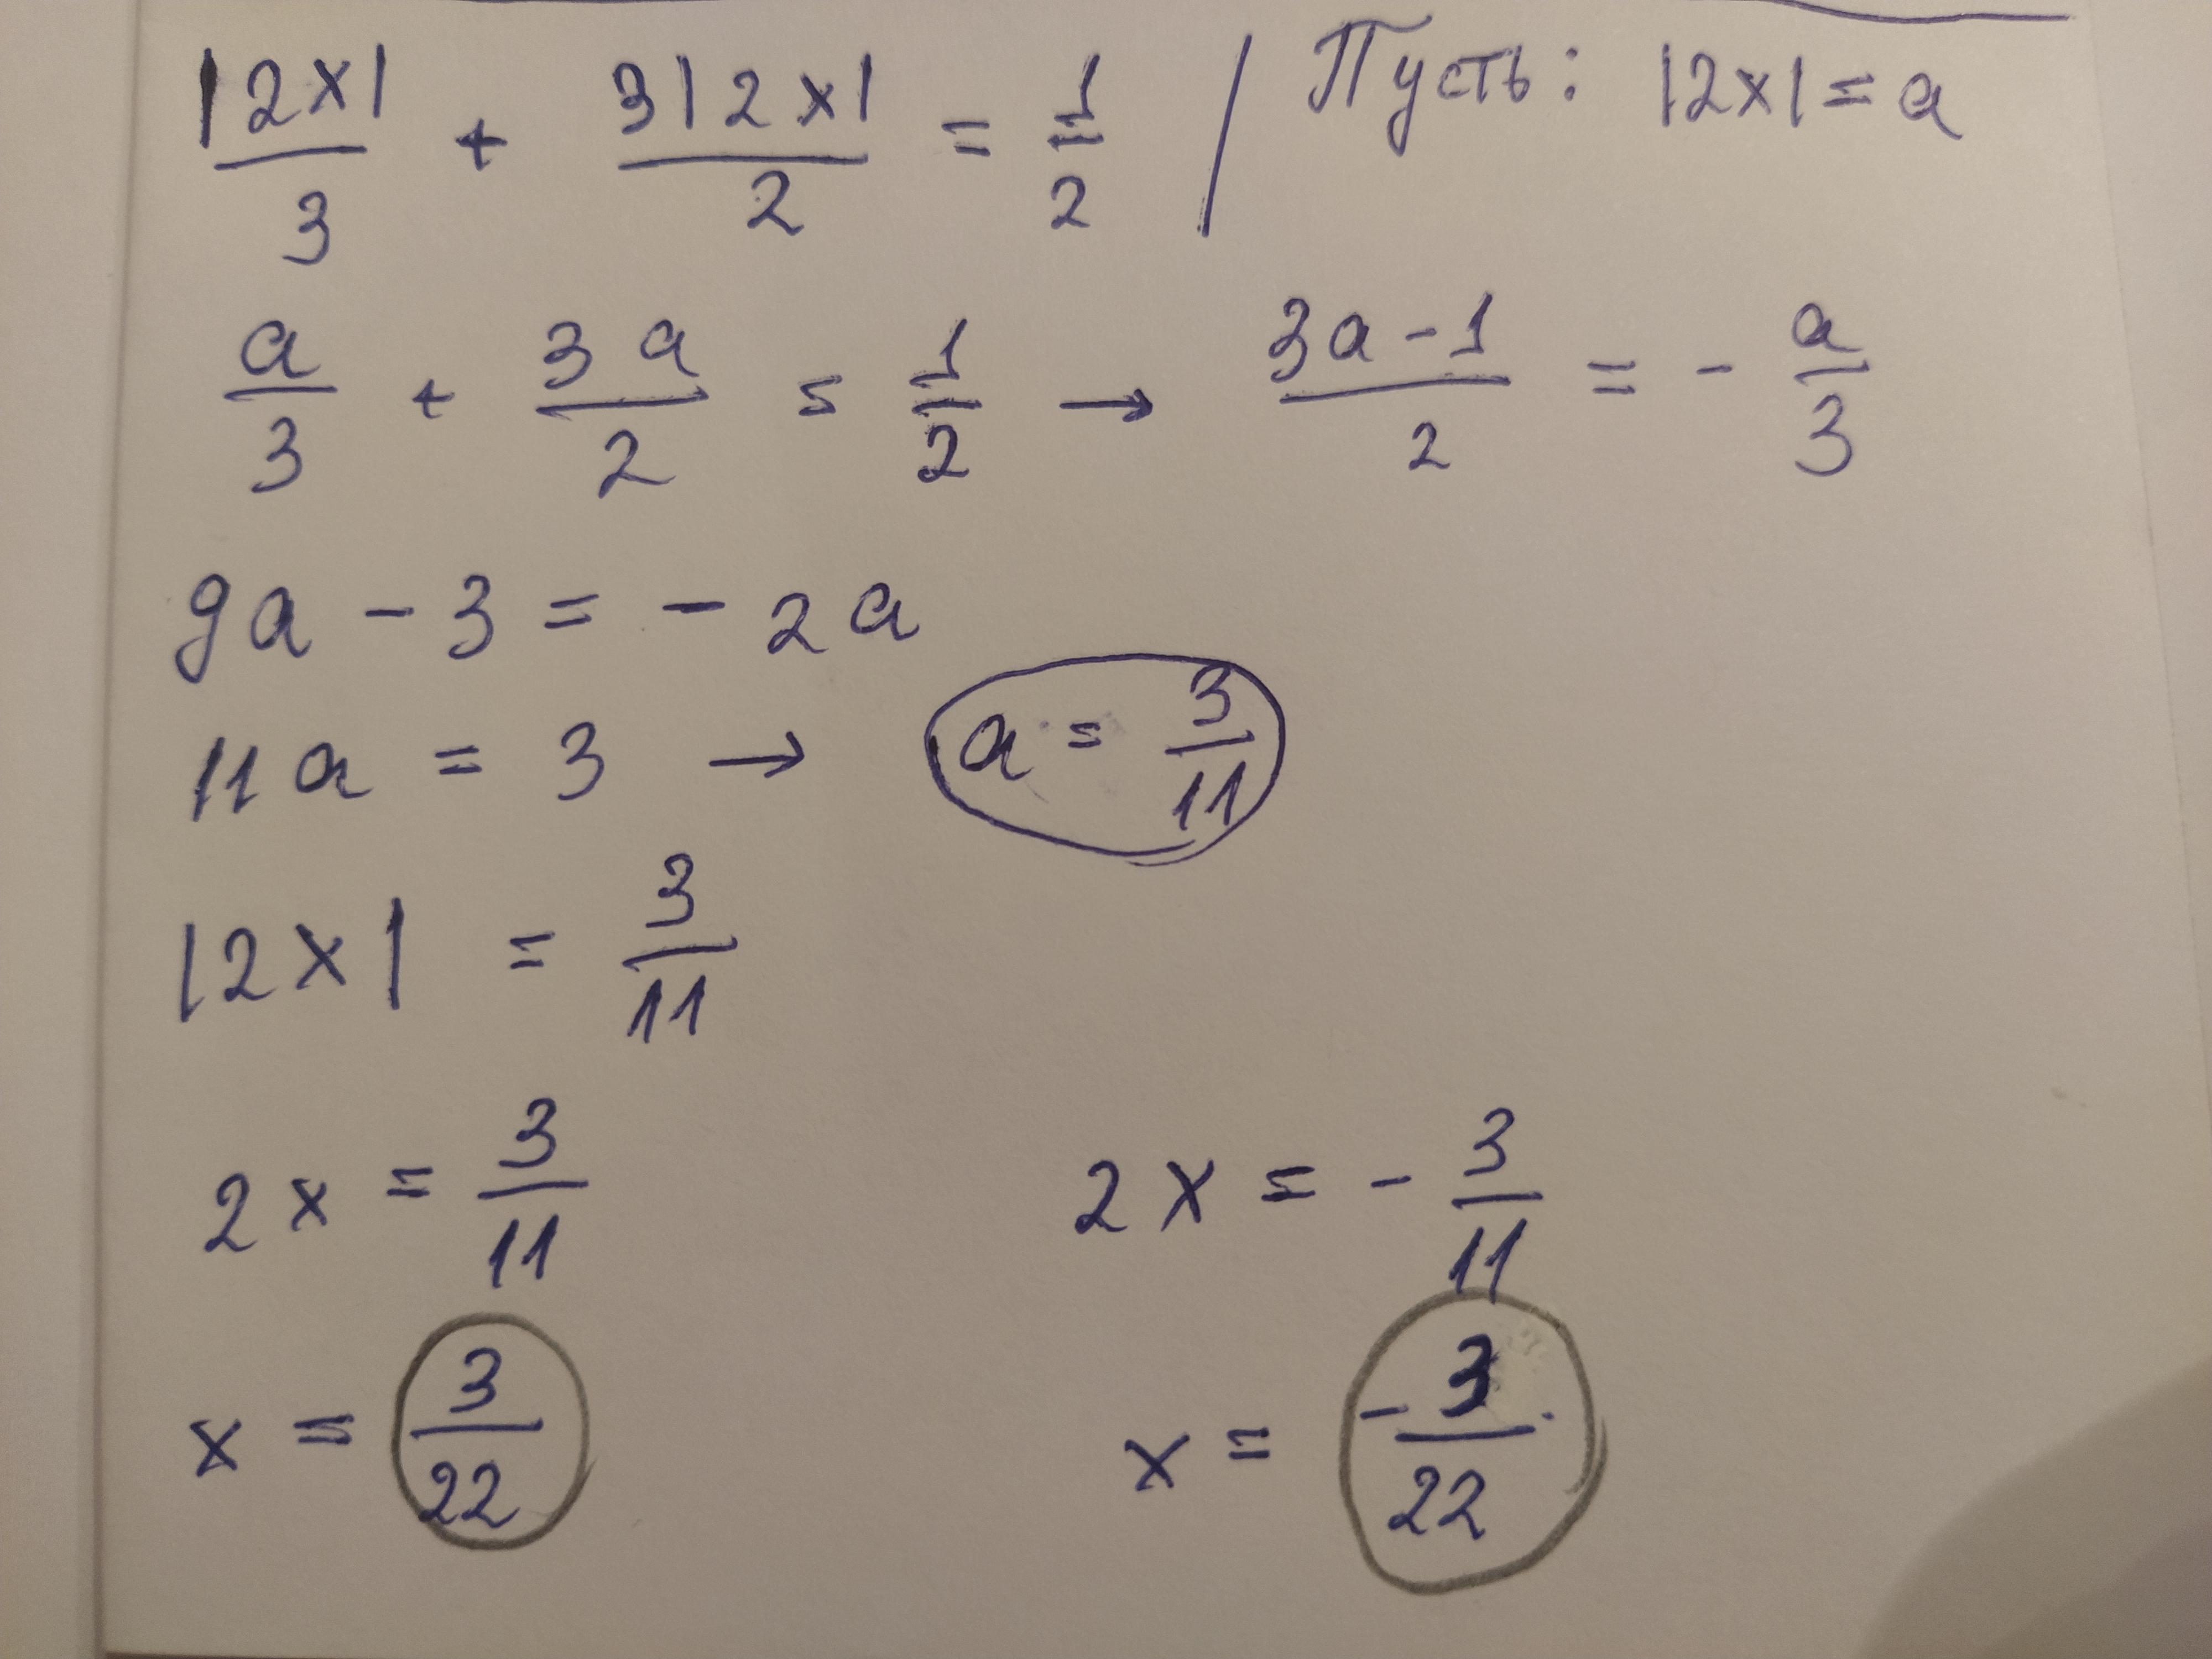 |2x|/3 + 3|2x|/2 = 1/2 / Пусть: |2x| = a
a/3 + 3a/2 = 1/2 → 3a-1/2 = - a/3
9a - 3 = - 2a
11a = 3 → a = 3/11
|2x| = 3/11
2x = 3/11 2x = - 3/11
x = 3/22 x = -3/22